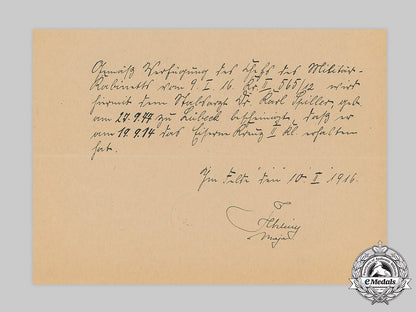 Gemäß Verfügung des Chefs des Militär-
Kabinetts vom 9. I. 16. Nr. II 565/12 wird
hiermit dem Stabsarzt Dr. Karl Spiller, geb.
am 27.9.77 zu Lübeck bescheinigt, daß er
am 19.9.14 das Eiserne Kreuz II Kl. erhalten
hat.
Im Felde den 10 II 1916.
Major
eMedals